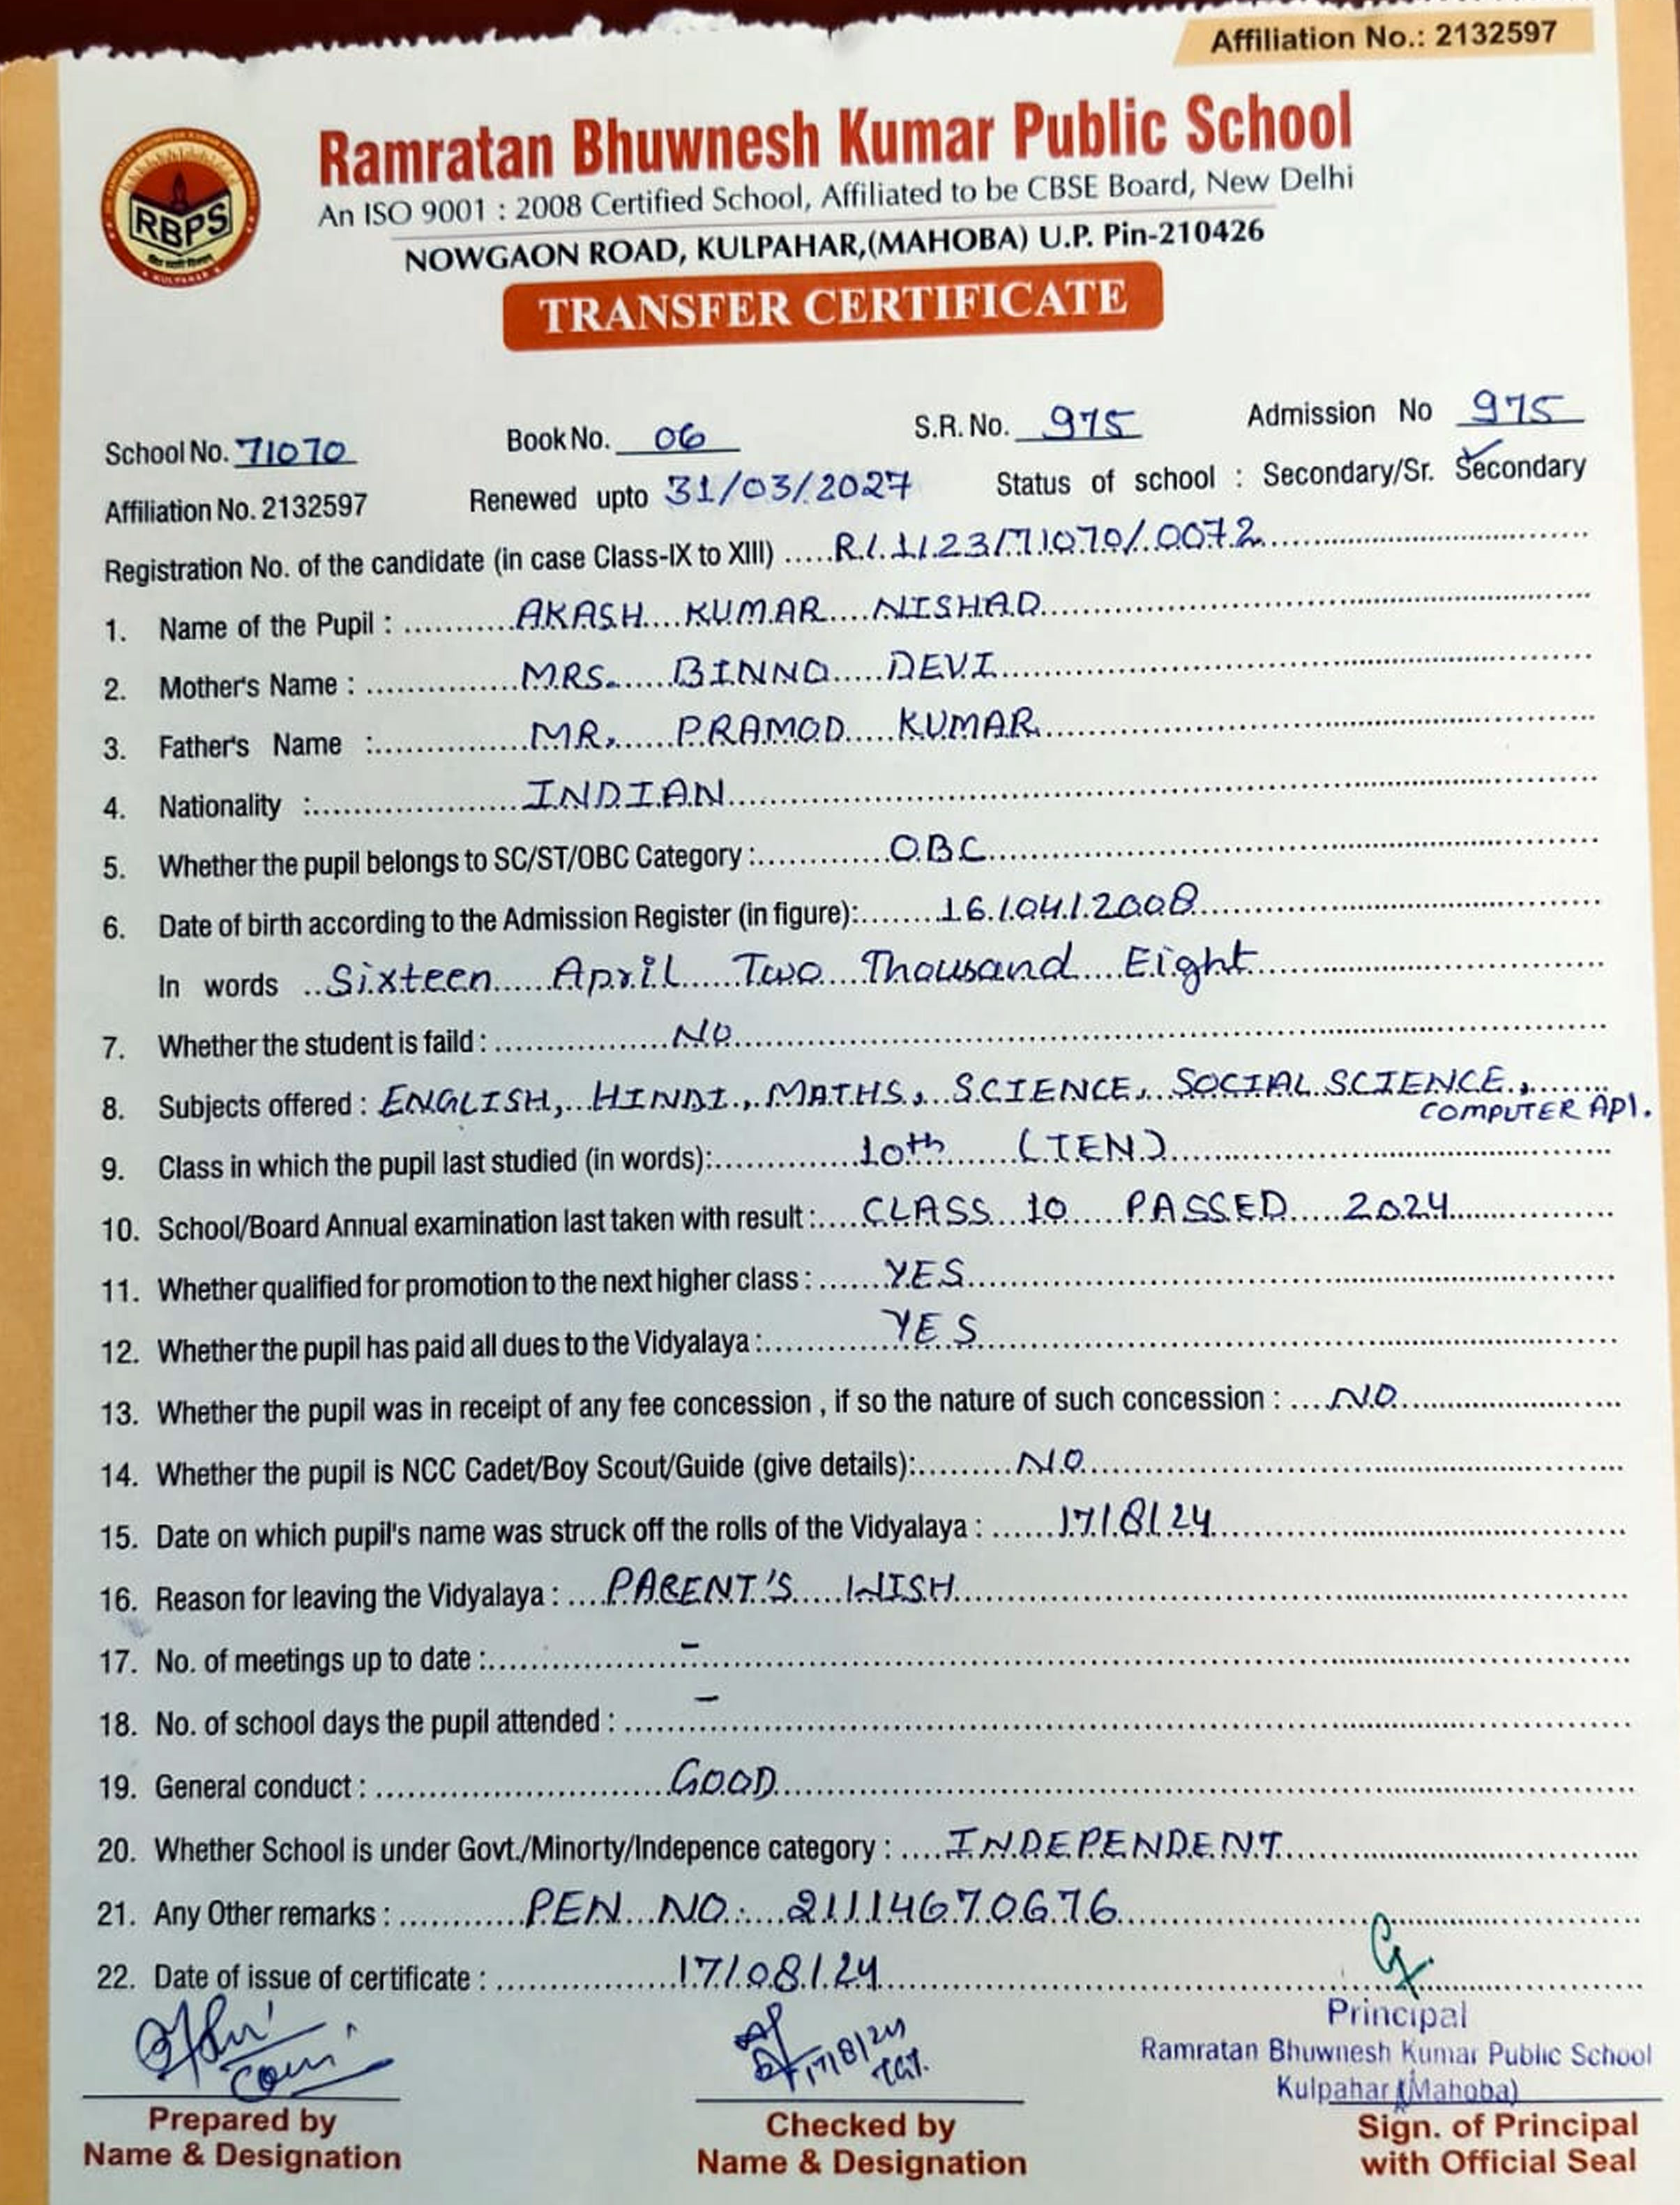 Affiliation No.: 2132597
Ramratan Bhuwnesh Kumar Public School
An ISO 9001 : 2008 Certified School, Affiliated to be CBSE Board, New Delhi
NOWGAON ROAD, KULPAHAR,(MAHOBA) U.P. Pin-210426
RBPS
KULPAHAR
TRANSFER CERTIFICATE
School No. 71070 Book No. 06 S.R. No. 975 Admission No 975
Affiliation No. 2132597 Renewed upto 31/03/2027 Status of school : Secondary/Sr. Secondary
Registration No. of the candidate (in case Class-IX to XIII) R/1123/71070/0072
1. Name of the Pupil : AKASH KUMAR NISHAD
2. Mother's Name : MRS. BINNO DEVI
3. Father's Name : MR. PRAMOD KUMAR
4. Nationality : INDIAN
5. Whether the pupil belongs to SC/ST/OBC Category : OBC
6. Date of birth according to the Admission Register (in figure): 16/04/2008
In words Sixteen April Two Thousand Eight
7. Whether the student is faild : NO
8. Subjects offered : ENGLISH, HINDI, MATHS, SCIENCE, SOCIAL SCIENCE,
COMPUTER Apl.
9. Class in which the pupil last studied (in words): 10th (TEN)
10. School/Board Annual examination last taken with result : CLASS 10 PASSED 2024
11. Whether qualified for promotion to the next higher class : YES
12. Whether the pupil has paid all dues to the Vidyalaya : YES
13. Whether the pupil was in receipt of any fee concession , if so the nature of such concession : NO
14. Whether the pupil is NCC Cadet/Boy Scout/Guide (give details): NO
15. Date on which pupil's name was struck off the rolls of the Vidyalaya : 17/8/24
16. Reason for leaving the Vidyalaya : PARENT'S WISH
17. No. of meetings up to date : -
18. No. of school days the pupil attended : -
19. General conduct : GOOD
20. Whether School is under Govt./Minorty/Indepence category : INDEPENDENT
21. Any Other remarks : PEN NO: 21114670676
22. Date of issue of certificate : 17/08/24
17/8/24
TGT.
Principal
Ramratan Bhuwnesh Kumar Public School
Kulpahar (Mahoba)
Prepared by Checked by Sign. of Principal
Name & Designation Name & Designation with Official Seal